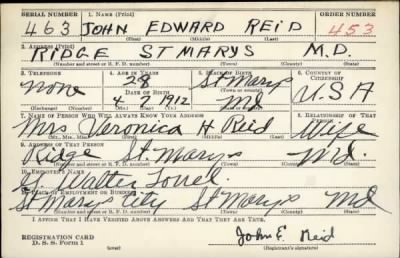 SERIAL NUMBER 1. NAME (Print) ORDER NUMBER
463 JOHN EDWARD REID 453
(First) (Middle) (Last)
2. ADDRESS (Print)
RIDGE ST MARYS M.D.
(Number and street or R. F. D. number) (Town) (County) (State)
3. TELEPHONE 4. AGE IN YEARS 5. PLACE OF BIRTH 6. COUNTRY OF CITIZENSHIP
none 28 St Marys U.S.A
DATE OF BIRTH (Town or county)
4 1912 Md
(Exchange) (Number) (Mo.) (Day) (Yr.) (State or country)
7. NAME OF PERSON WHO WILL ALWAYS KNOW YOUR ADDRESS 8. RELATIONSHIP OF THAT PERSON
Mrs. Veronica H Reid Wife
(Mr., Mrs., Miss) (First) (Middle) (Last)
9. ADDRESS OF THAT PERSON
Ridge St Marys Md.
(Number and street or R. F. D. number) (Town) (County) (State)
10. EMPLOYER'S NAME
Walter
11. PLACE OF EMPLOYMENT OR BUSINESS
St Marys City St Marys Md
(Number and street or R. F. D. number) (Town) (County) (State)
I AFFIRM THAT I HAVE VERIFIED ABOVE ANSWERS AND THAT THEY ARE TRUE.
REGISTRATION CARD John E. Reid
D. S. S. Form 1 (over) (Registrant's signature)